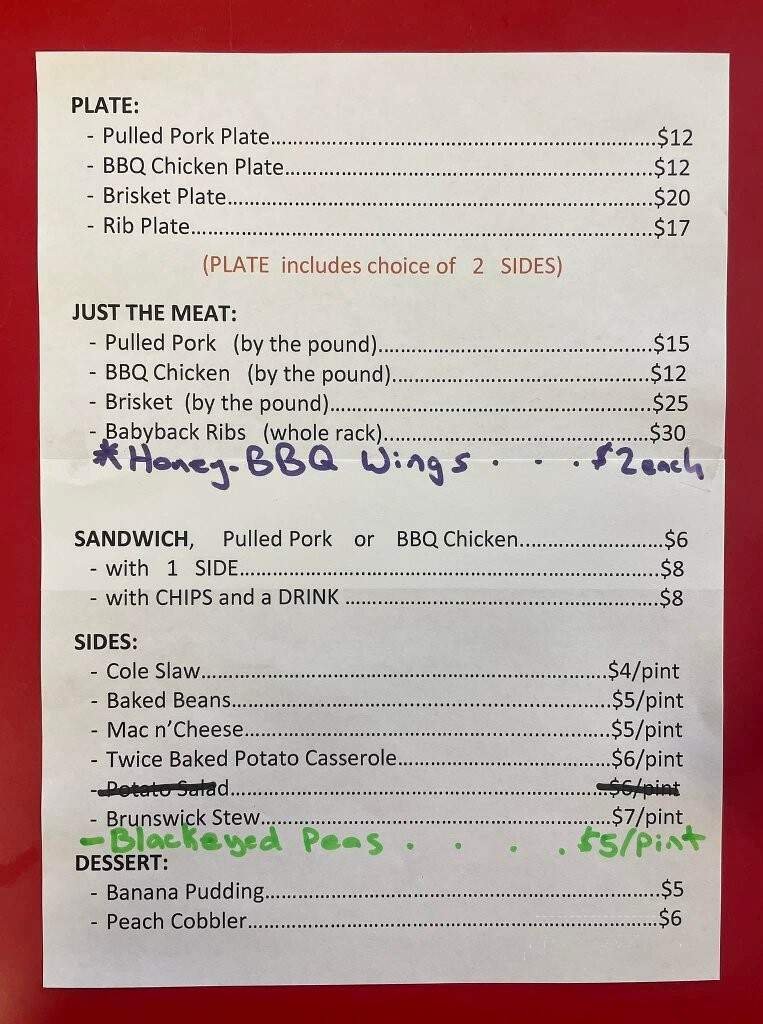 PLATE:
- Pulled Pork Plate....................................................$12
- BBQ Chicken Plate..................................................$12
- Brisket Plate...........................................................$20
- Rib Plate................................................................$17
(PLATE includes choice of 2 SIDES)
JUST THE MEAT:
- Pulled Pork (by the pound).......................................$15
- BBQ Chicken (by the pound).....................................$12
- Brisket (by the pound).............................................$25
- Babyback Ribs (whole rack)......................................$30
*Honey-BBQ Wings . . . $2each
SANDWICH, Pulled Pork or BBQ Chicken.....................$6
- with 1 SIDE.............................................................$8
- with CHIPS and a DRINK ............................................$8
SIDES:
- Cole Slaw..........................................................$4/pint
- Baked Beans......................................................$5/pint
- Mac n'Cheese....................................................$5/pint
- Twice Baked Potato Casserole...............................$6/pint
- Potato Salad......................................................$6/pint
- Brunswick Stew..................................................$7/pint
- Blackeyed Peas . . . . $5/pint
DESSERT:
- Banana Pudding........................................................$5
- Peach Cobbler..........................................................$6